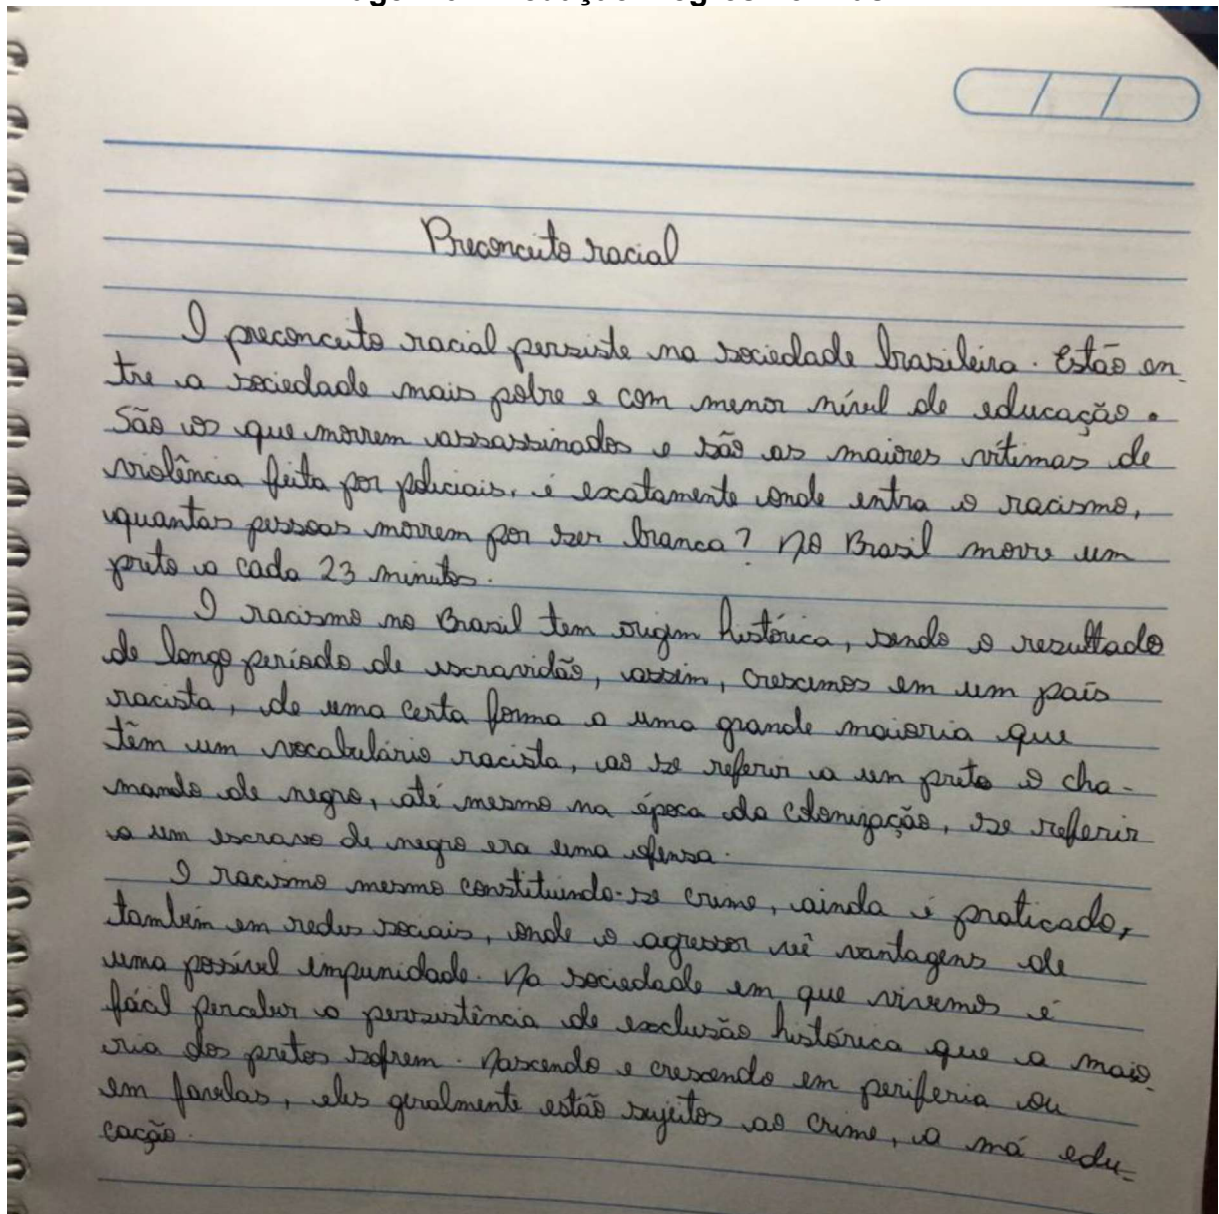 Preconceito racial
O preconceito racial persiste na sociedade brasileira. Estão en-
tre a sociedade mais pobre e com menor nível de educação.
São os que morrem assassinados e são as maiores vítimas de
violência feita por policiais, é exatamente onde entra o racismo,
quantas pessoas morrem por ser branca? No Brasil morre um
preto a cada 23 minutos.
O racismo no Brasil tem origem histórica, sendo o resultado
de longo período de escravidão, assim, crescemos em um país
racista, de uma certa forma a uma grande maioria que
têm um vocabulário racista, ao se referir a um preto o cha-
mando de negro, até mesmo na época da colonização, se referir
a um escravo de negro era uma ofensa.
O racismo mesmo constituindo-se crime, ainda é praticado,
também em redes sociais, onde o agressor vê vantagens de
uma possível impunidade. Na sociedade em que vivemos é
fácil perceber a persistência de exclusão histórica que a maio-
ria dos pretos sofrem. Nascendo e crescendo em periferia ou
em favelas, eles geralmente estão sujeitos ao crime, a má edu-
cação.